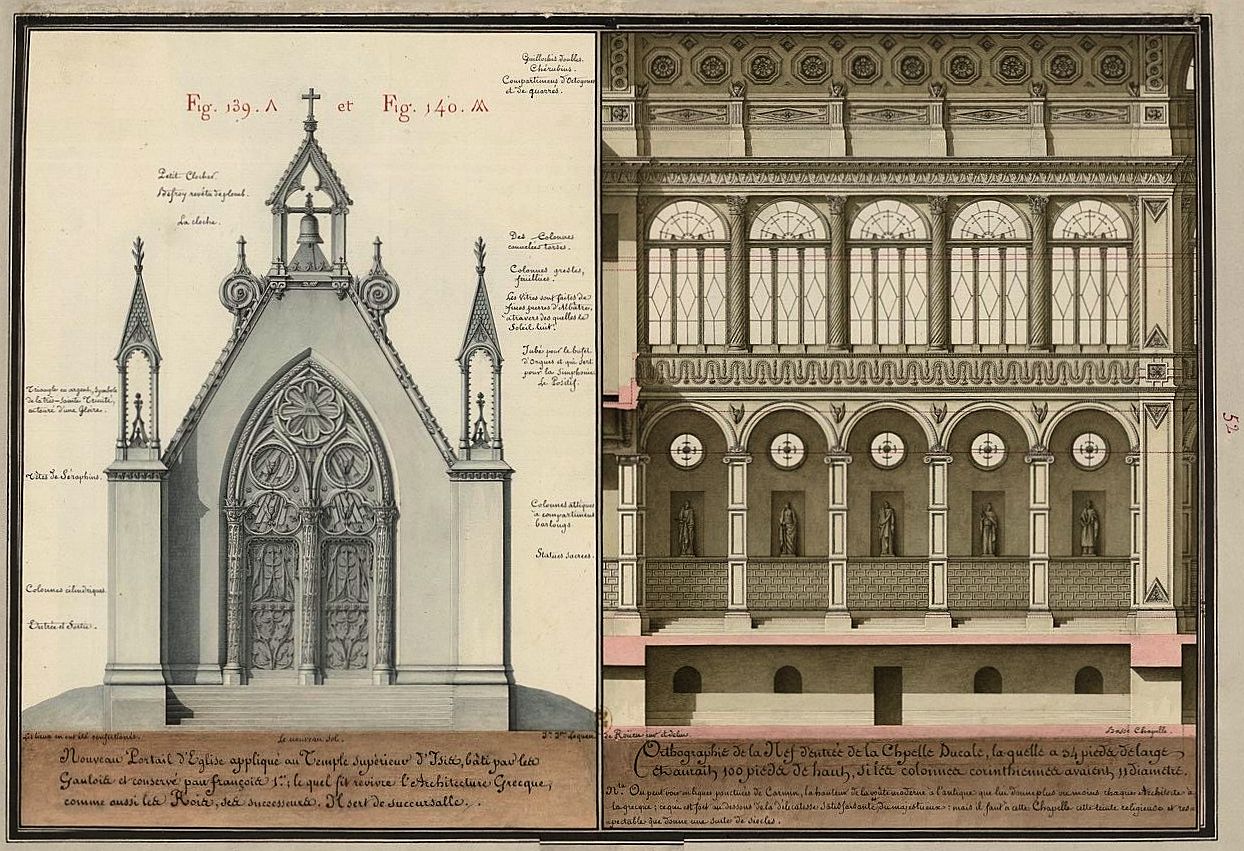 Fig. 139. Λ et Fig. 140. Ʌʌ
Guillochis doubles.
Chérubins.
Compartimens d'Octogones
et de quarrés.
Petit Clocher.
Béfroy revêtu de plomb.
La cloche.
Des Colonnes
cannelées torses.
Colonnes gresles,
feuillées.
Les Vitres sont faites de
fines pierres d'Albâtre,
à travers des quelles le
Soleil luit.
Jubé pour le bufet
d'Orgues et qui sert
pour la Simphonie.
Le Positif.
Triangle en argent, symbole
de la très-Sainte Trinité,
entouré d'une Gloire.
Têtes de Séraphins.
Colonnes attiques
à compartimens
barlongs.
Statues sacrées.
Colonnes cilindriques.
Entrée et Sortie.
52
Les lieux en ont été
Le nouveau sol.
Jn. Jque. Lequeu
de Rouen inv. et delin.
Basse Chapelle.
Nouveau Portail d'Eglise appliqué au Temple supérieur d'Isis, bâti par les
Gaulois et conservé par françois 1er.; le quel fit revivre l'Architecture Grecque,
comme aussi les Rois, ses successeurs. Il sert de succursalle.
Orthographie de la Nef d'entrée de la Chpelle Ducale, la quelle a 54 pieds de large
et aurait 100 pieds de haut, si les colonnes corinthiennes avaient 11 diamètre.
Nta. On peut voir en lignes ponctuées de Carmin, la hauteur de la voûte moderne à l'antique que lui donne plus ou moins chaque Architecte à
la grecque; ce qui est fort au dessous de la délicatesse satisfaisante, du majestueux: mais il faut à cette Chapelle cette teinte religieuse et res-
pectable que donne une suite de siecles.